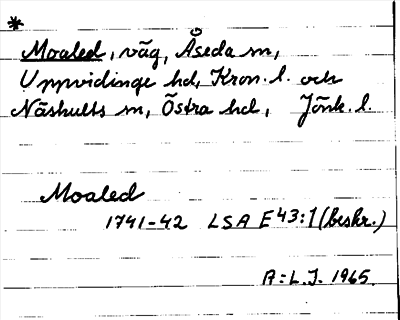 *
Moaled, väg, Åseda sn,
Uppvidinge hd, Kron. l. och
Näshults sn, Östra hd, Jönk. l.
Moaled
1741-42 LSA E43:1 (beskr.)
A:L.J. 1965.